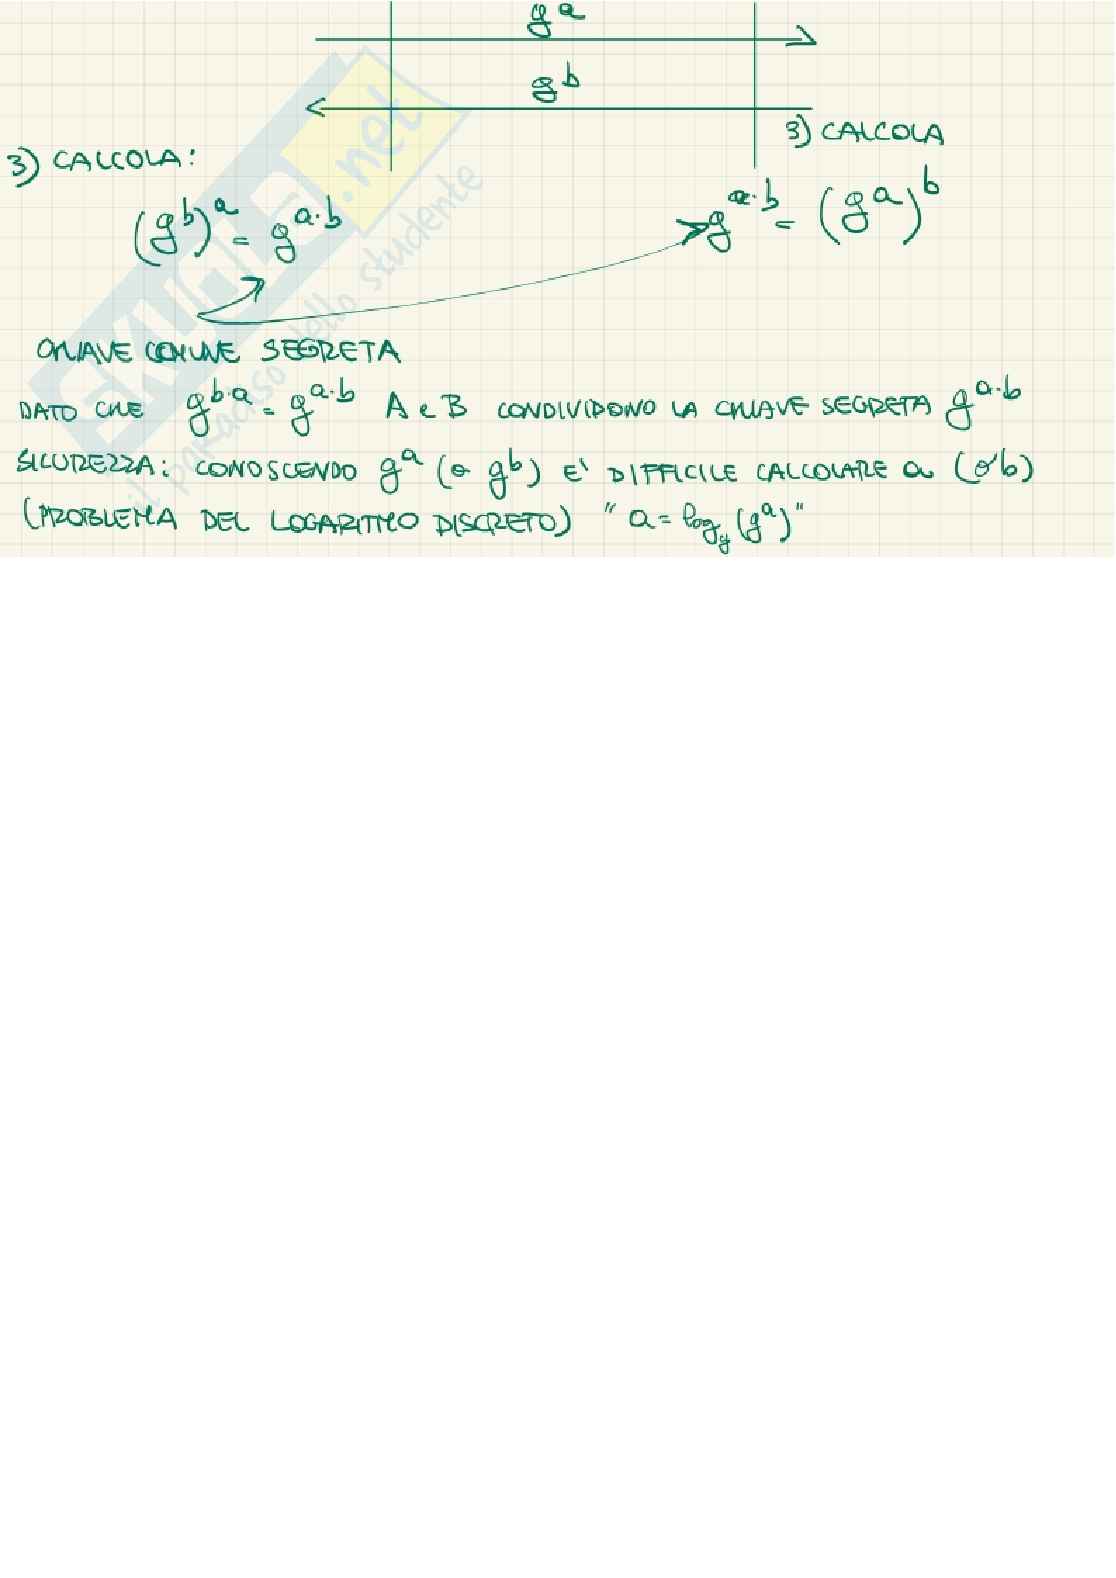 g^a
g^b
3) CALCOLA
3) CALCOLA:
(g^b)^a = g^{a·b}
g^{a·b} = (g^a)^b
CHIAVE COMUNE SEGRETA
DATO CHE g^{b·a} = g^{a·b} A e B CONDIVIDONO LA CHIAVE SEGRETA g^{a·b}
SICUREZZA: CONOSCENDO g^a (o g^b) E' DIFFICILE CALCOLARE a (o b)
(PROBLEMA DEL LOGARITMO DISCRETO) "a = log_g (g^a)"
SKUOLA.net
il paradiso dello studente